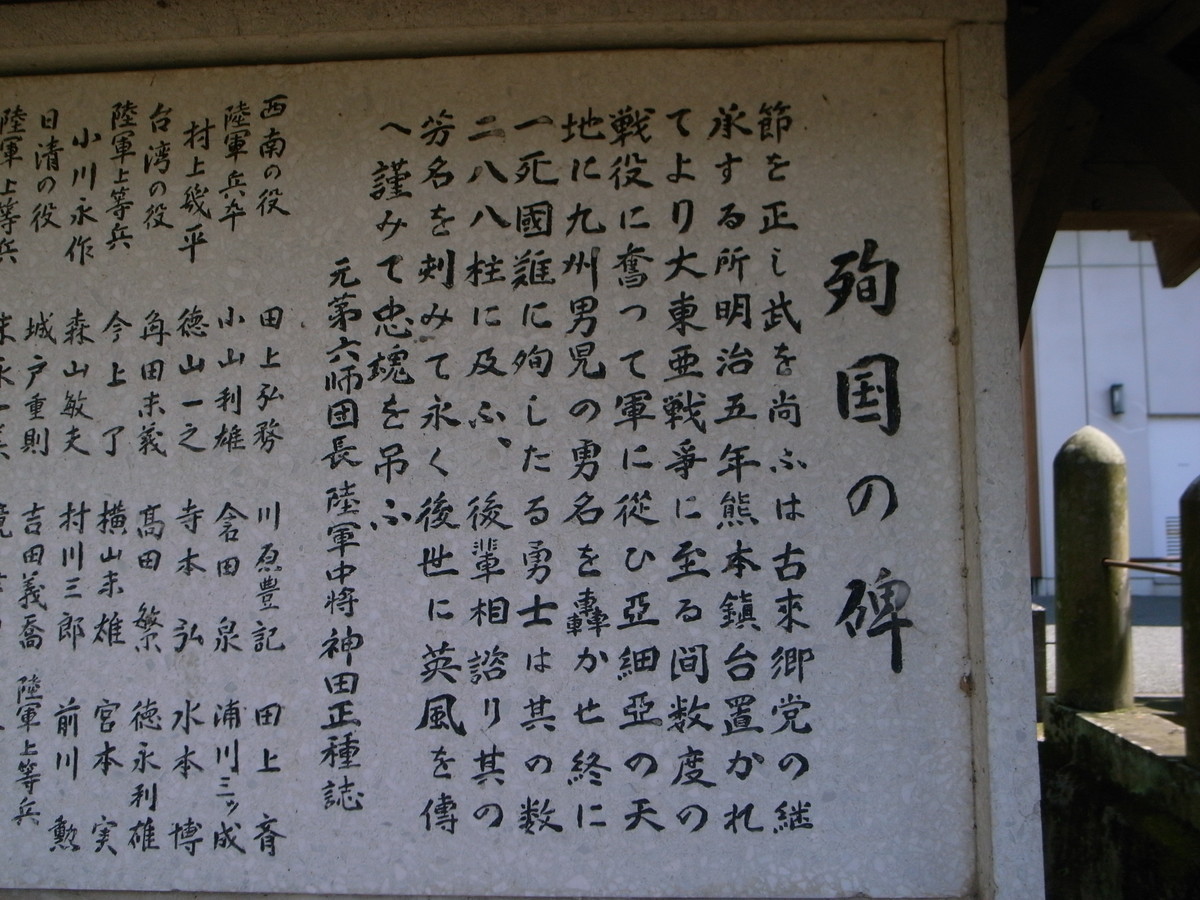 殉国の碑
節を正し武を尚ふは古来郷党の継
承する所明治五年熊本鎮台置かれ
てより大東亜戦爭に至る间数度の
戦役に奮つて軍に従ひ亞細亞の天
地に九州男児の勇名を轟かせ終に
一死國難に殉したる勇士は其の数
二八八柱に及ふ、後輩相諮り其の
芳名を刻みて永く後世に英風を傳
へ謹みて忠魂を吊ふ
元第六师団長陸軍中将神田正種誌
西南の役 田上弘務 川原豊記 田上斉
陸軍兵卒 小山利雄 倉田泉 浦川三ッ成
村上幾平 徳山一之 寺本弘 水本博
台湾の役 角田末義 髙田繁 徳永利雄
陸軍上等兵 今上了 横山末雄 宮本実
小川永作 森山敏夫 村川三郎 前川勲
日清の役 城戸重則 吉田義喬 陸軍上等兵
陸軍上等兵